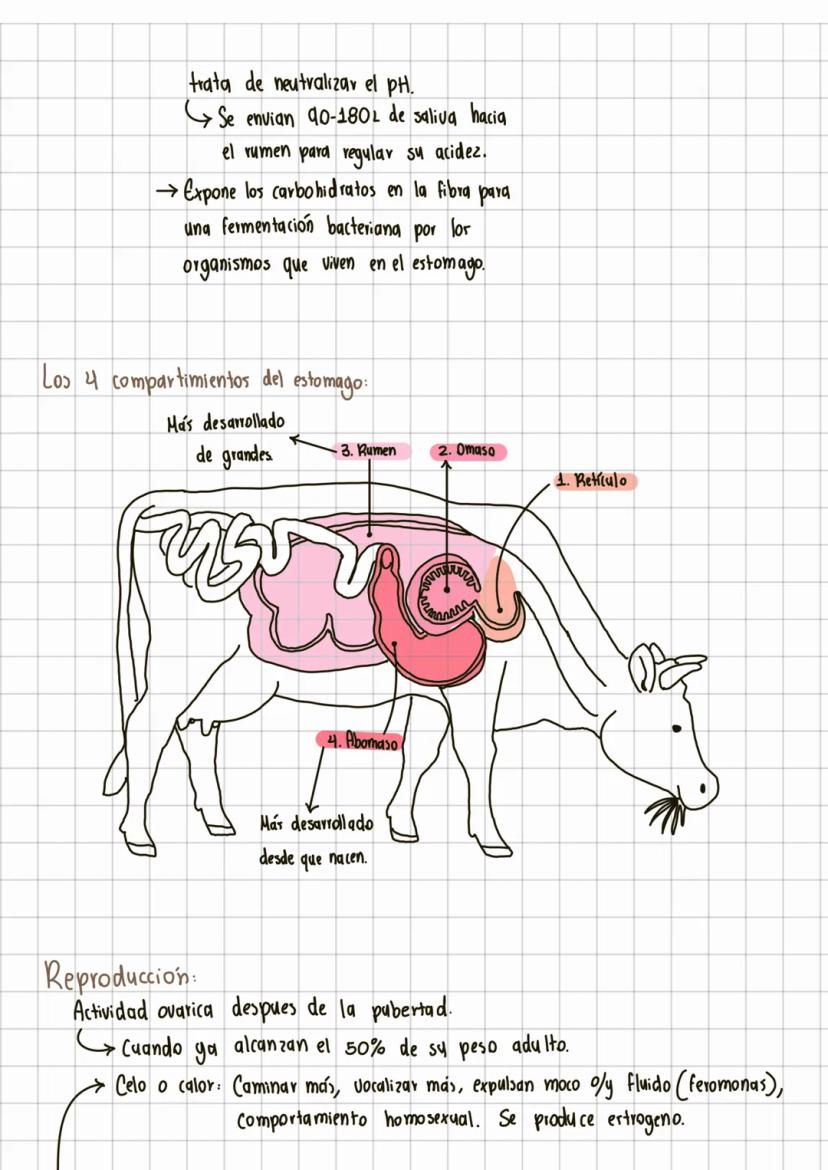 trata de neutralizar el pH.
↳ Se envian 90-180L de saliva hacia
el rumen para regular su acidez.
→ Expone los carbohidratos en la fibra para
una fermentación bacteriana por los
organismos que viven en el estomago.
Los 4 compartimientos del estomago:
Más desarrollado
de grandes.
3. Rumen
2. Omaso
1. Retículo
4. Abomaso
Más desarrollado
desde que nacen.
Reproducción:
Actividad ovarica despues de la pubertad.
↳ Cuando ya alcanzan el 50% de su peso adulto.
→ Celo o calor: Caminar más, vocalizar más, expulsan moco o/y fluido (feromonas),
comportamiento homosexual. Se produce estrogeno.